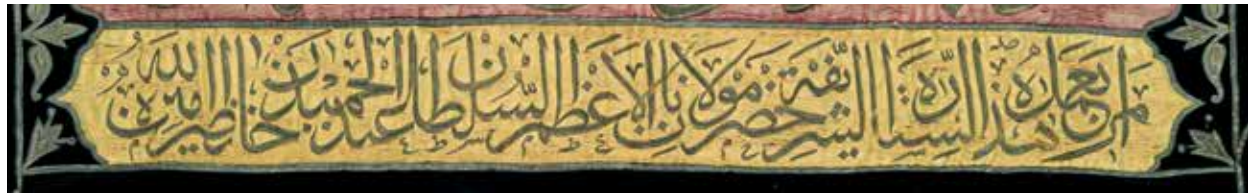 امر بعمل هذه الستارة الشريفة حضرة مولانا الاعظم السلطان عبد الحميد خان الله